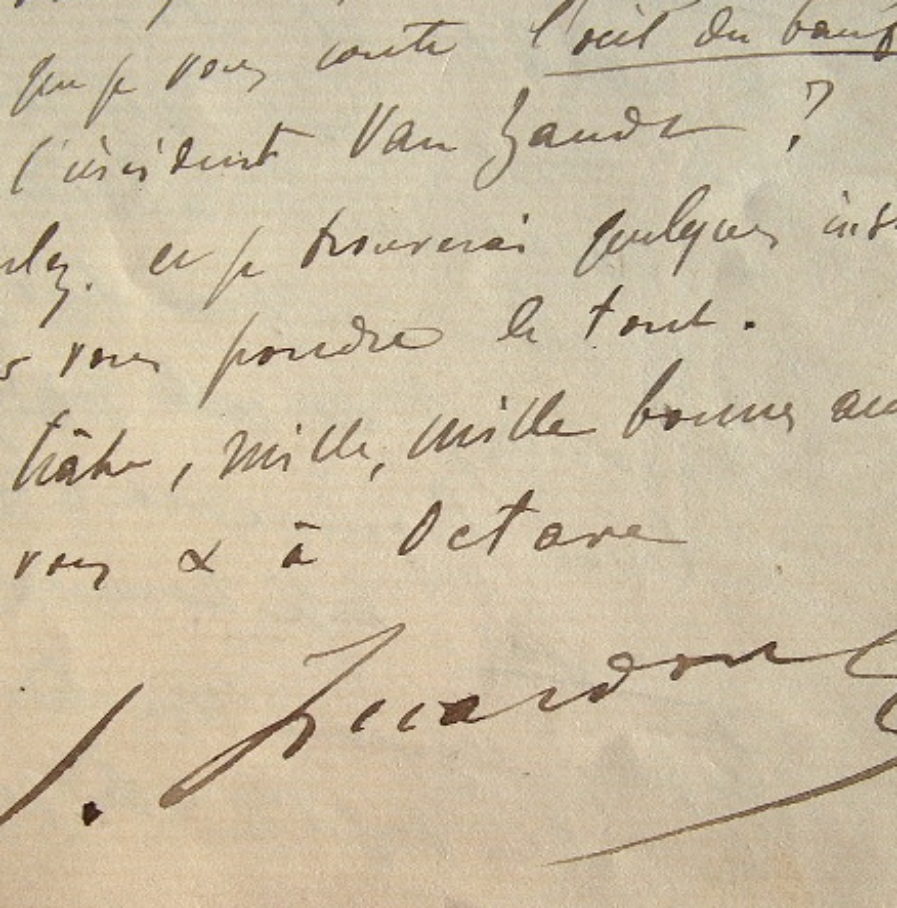 que je vous conte l'œil du bœuf
l'incident Van Zandt ?
et je trouverai quelques inst
vous pondre le tout.
hâte, mille, mille bonnes am
vous & à Octave
J. Ricard